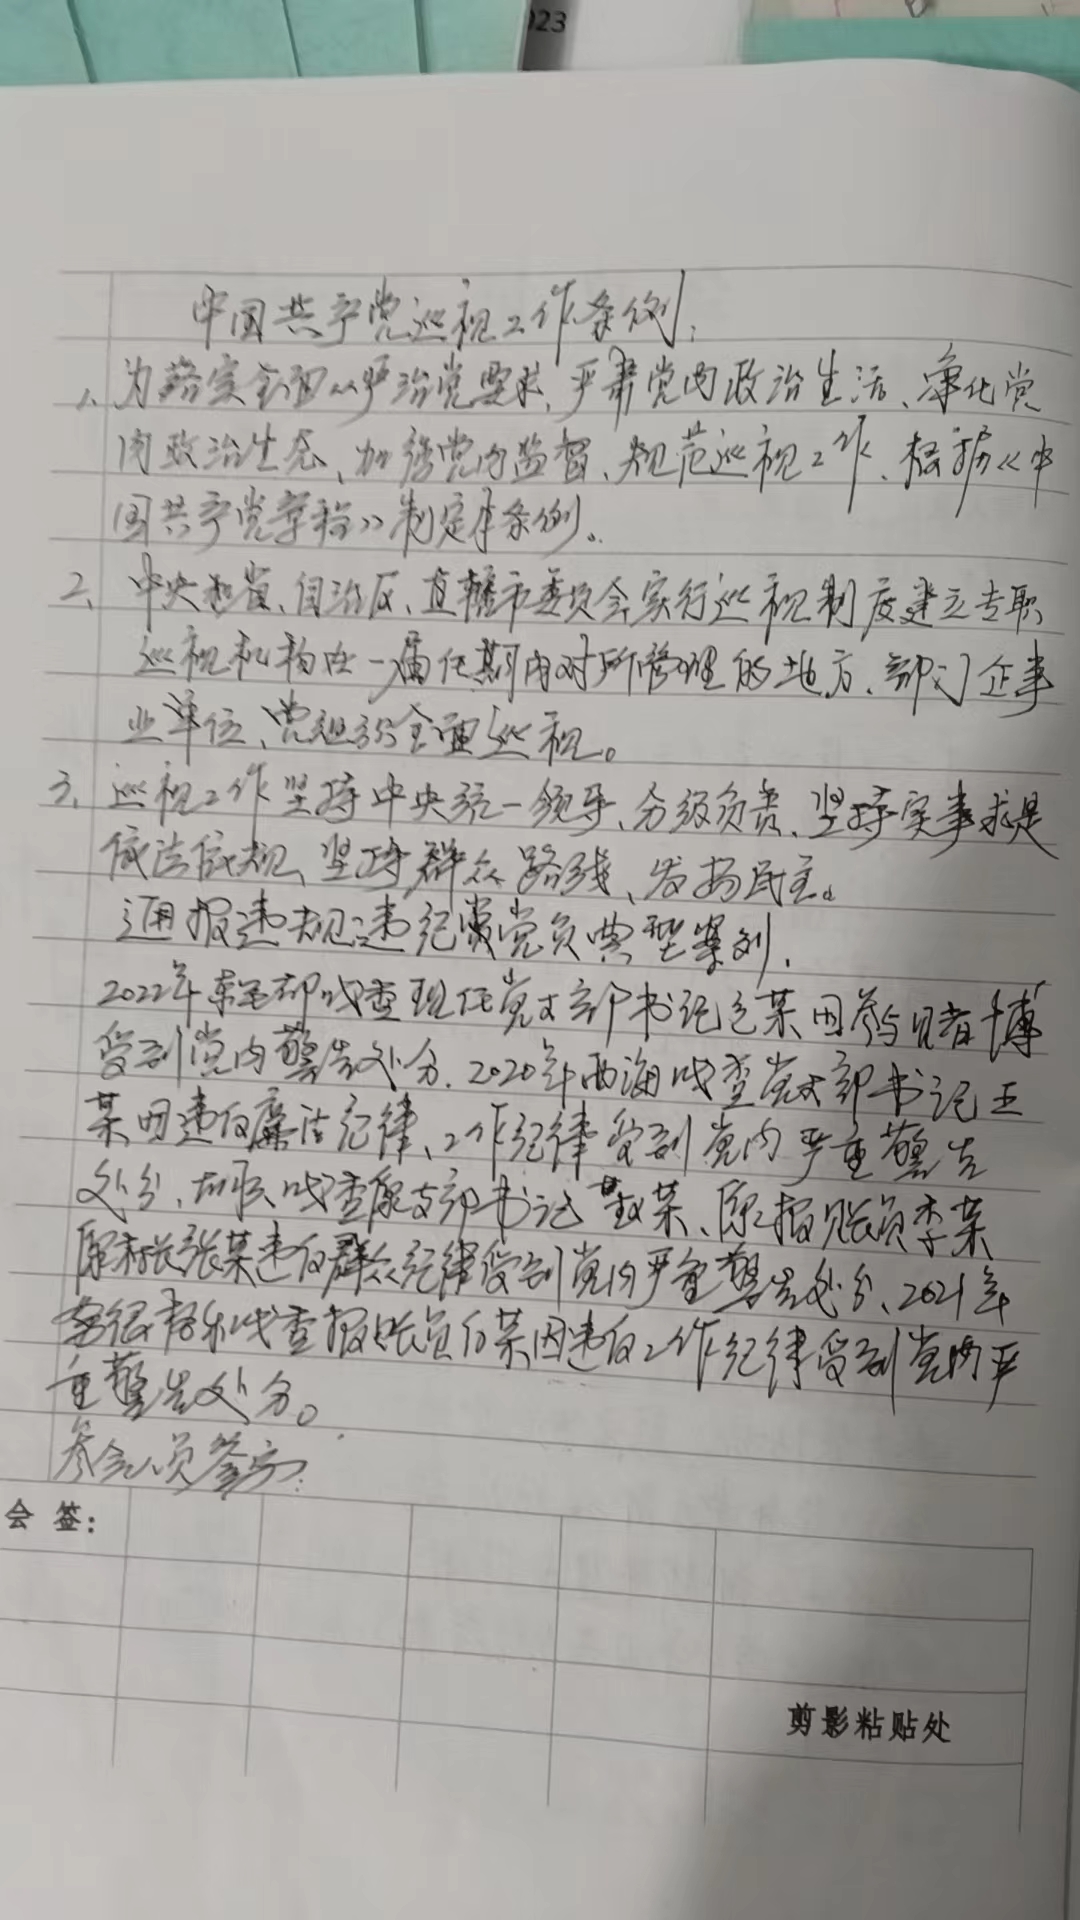 023
中国共产党巡视工作条例:
1、为落实全面从严治党要求、严肃党内政治生活、净化党
内政治生态、加强党内监督、规范巡视工作、根据《中
国共产党章程》制定本条例。
2、中央和省、自治区、直辖市委员会实行巡视制度建立专职
巡视机构在一届任期内对所管理的地方、部门企事
业单位、党组织全面巡视。
3、巡视工作坚持中央统一领导、分级负责、坚持实事求是
依法依规、坚持群众路线、发扬民主。
通报违规违纪党员典型案例.
2022年 现任党支部书记 某因参与赌博
受到党内警告处分.2020年西海 党支部书记王
某因违反廉洁纪律、工作纪律受到党内严重警告
处分. 原支部书记 某、原报账员李某
原村长张某违反群众纪律受到党内严重警告处分、2021年
报账员 某因违反工作纪律受到党内严
重警告处分。
参会人员签字:
会 签:
剪影粘贴处